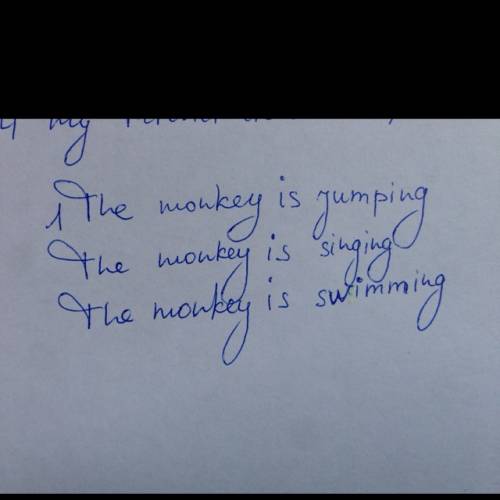 my
1 The monkey is jumping
The monkey is singing
The monkey is swimming